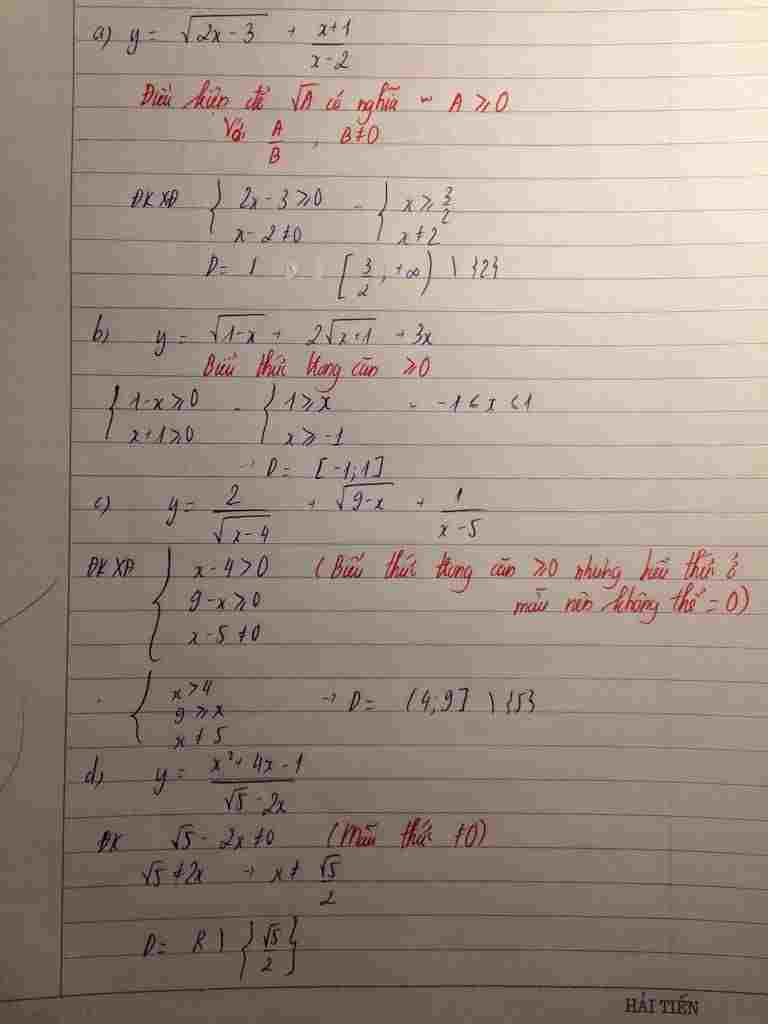 a) y = √(2x - 3) + (x+1)/(x-2)
Điều kiện để √A có nghĩa ~ A ≥ 0
Với A/B , B≠0
ĐKXĐ { 2x - 3 ≥ 0 - { x ≥ 3/2
x - 2 ≠ 0 x ≠ 2
D = [3/2, +∞) \ {2}
b) y = √(1-x) + 2√(x+1) + 3x
Biểu thức trong căn ≥0
{ 1-x ≥ 0 - { 1 ≥ x - -1 ≤ x ≤ 1
x+1 ≥ 0 x ≥ -1
→ D = [-1;1]
c) y = 2/√(x-4) + √(9-x) + 1/(x-5)
ĐKXĐ { x - 4 > 0 (Biểu thức trong căn ≥0 nhưng biểu thức ở
9 - x ≥ 0 mẫu nên không thể = 0)
x - 5 ≠ 0
{ x > 4
9 ≥ x → D = (4;9] \ {5}
x ≠ 5
d) y = (x² + 4x - 1)/(√5 - 2x)
ĐK √5 - 2x ≠ 0 (Mẫu thức ≠0)
√5 ≠ 2x → x ≠ √5/2
D = R \ {√5/2}
HẢI TIẾN